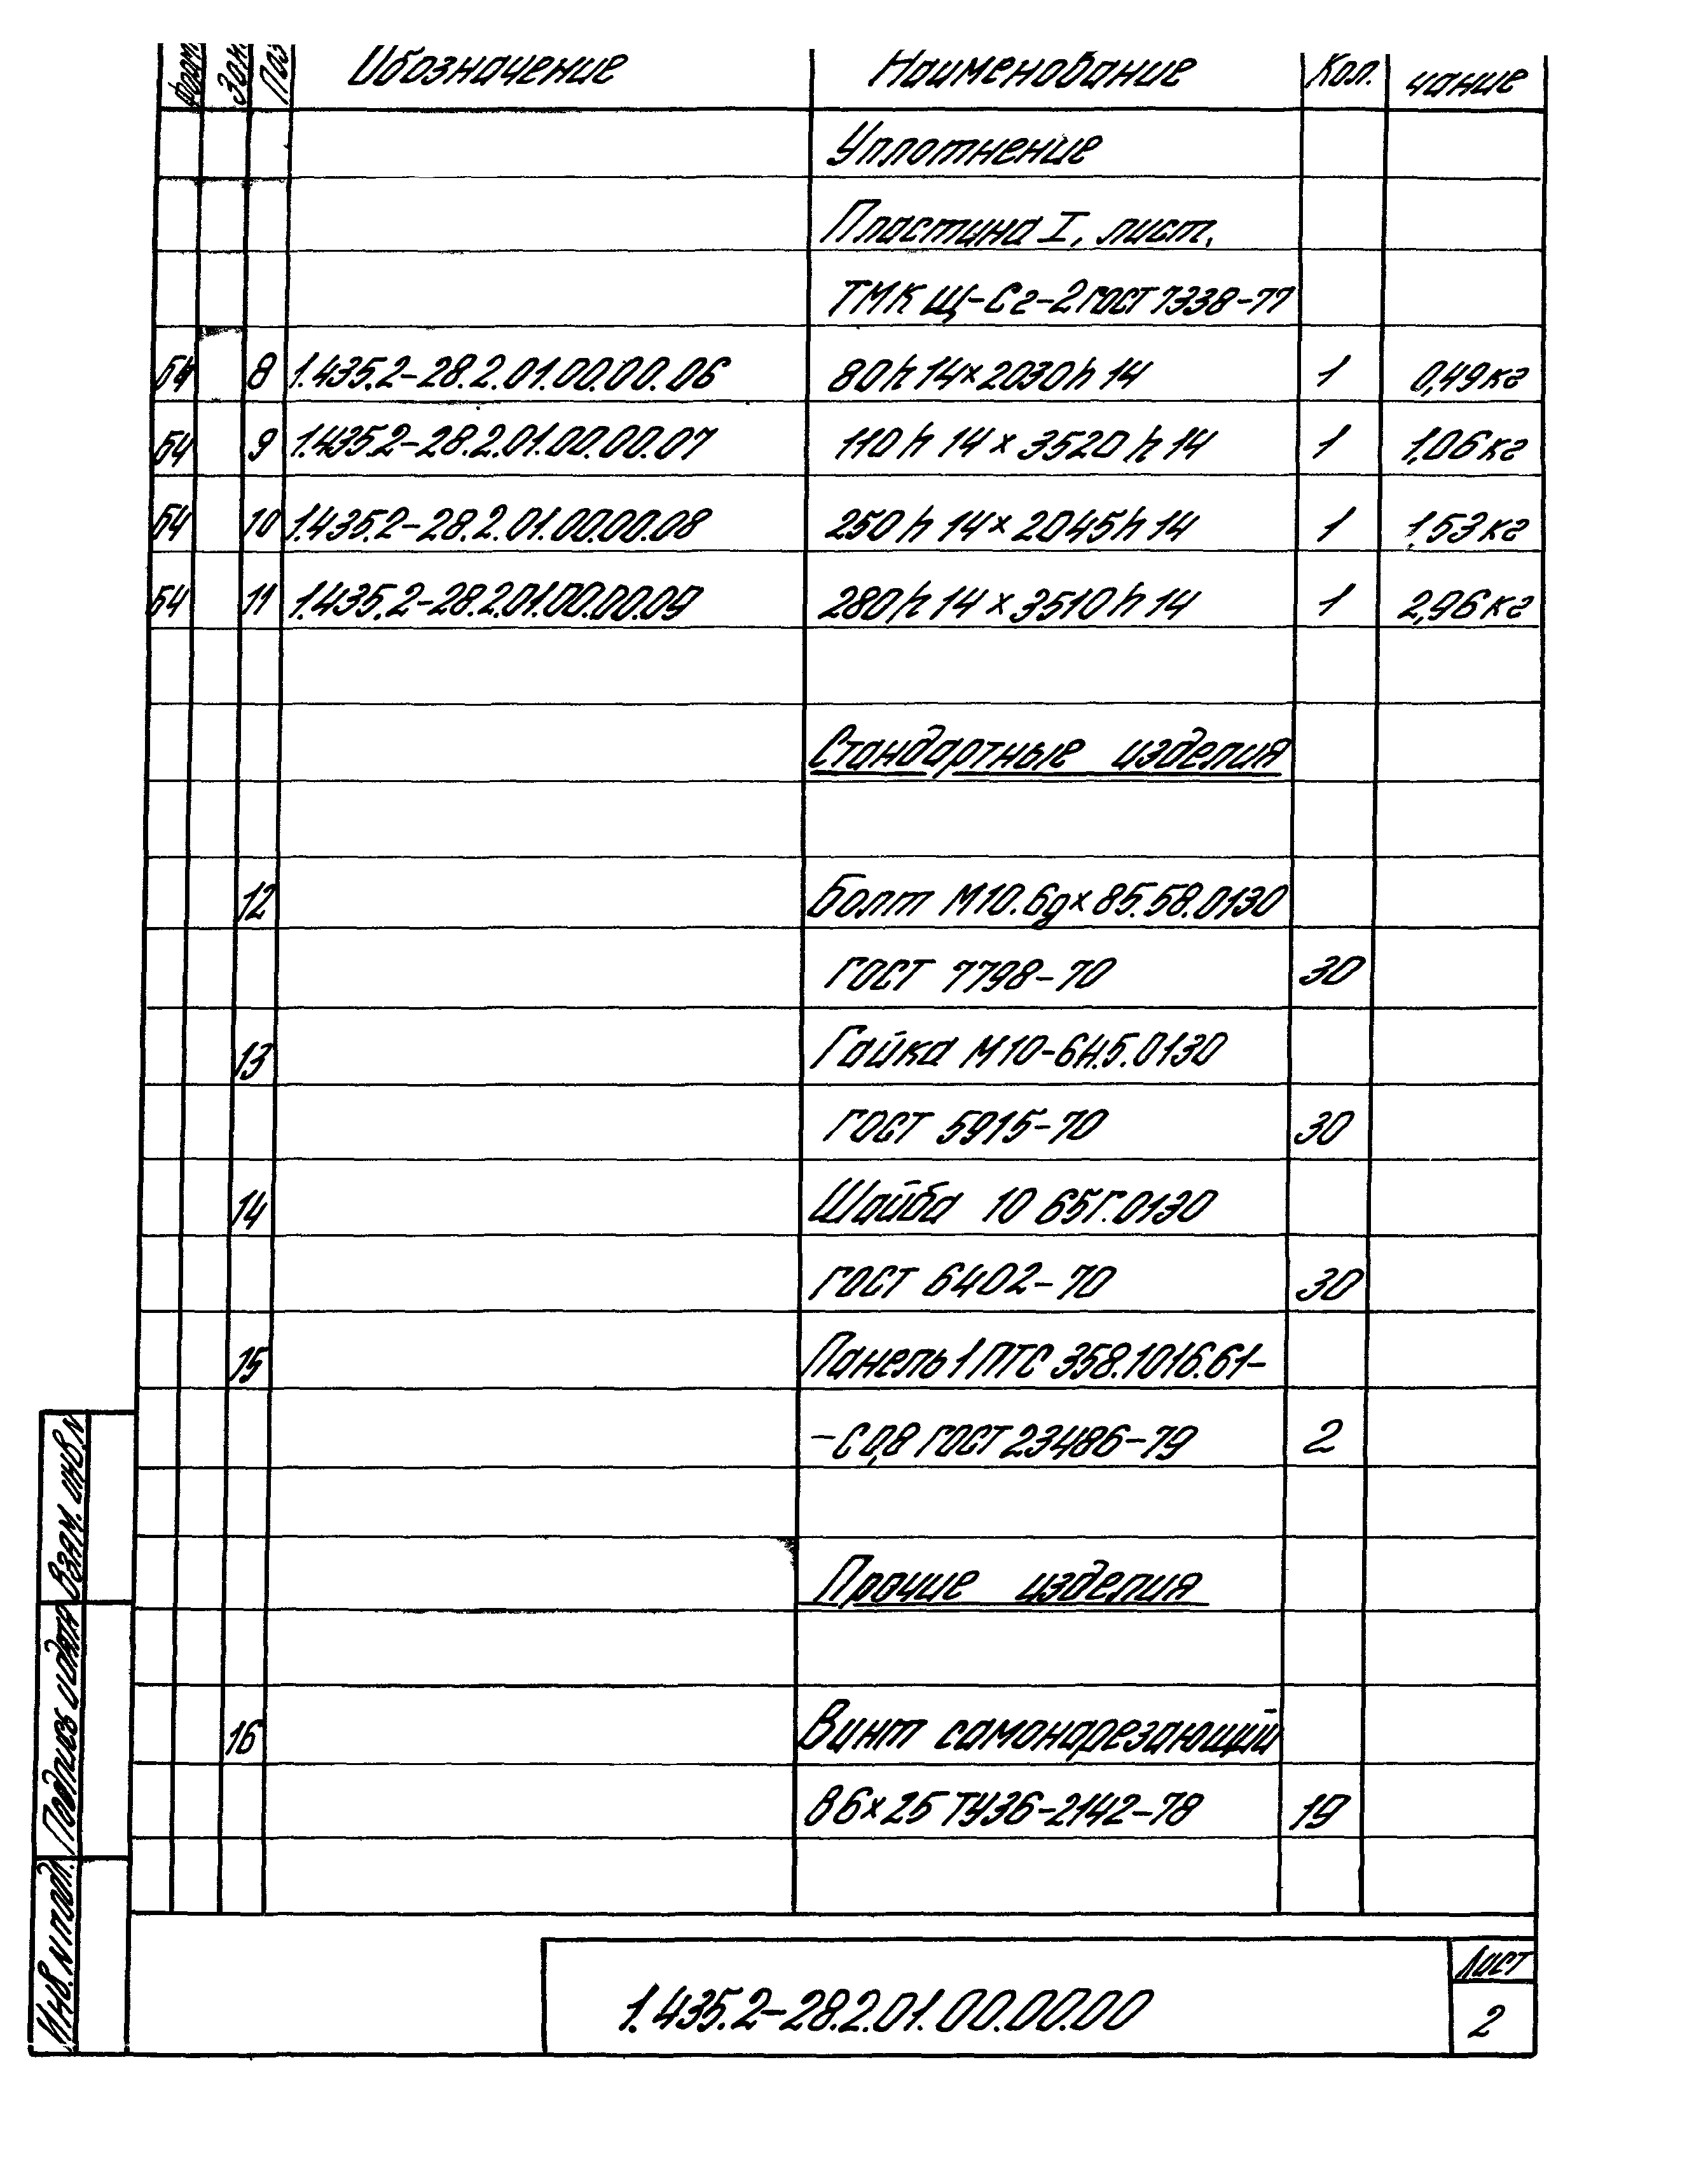 Форм. Зон. Поз. Обозначение Наименование Кол. чание
Уплотнение
Пластина I, лист,
ТМКЩ-С2-2 ГОСТ 7338-77
БЧ 8 1.435.2-28.2.01.00.00.06 80h14×2030h14 1 0,49кг
БЧ 9 1.435.2-28.2.01.00.00.07 110h14×3520h14 1 1,06кг
БЧ 10 1.435.2-28.2.01.00.00.08 250h14×2045h14 1 1,53кг
БЧ 11 1.435.2-28.2.01.00.00.09 280h14×3510h14 1 2,96кг
Стандартные изделия
12 Болт М10.6g×85.58.0130
ГОСТ 7798-70 30
13 Гайка М10-6Н.5.0130
ГОСТ 5915-70 30
14 Шайба 10 65Г.0130
ГОСТ 6402-70 30
15 Панель 1ПТС 358.1016.61-
-С0,8 ГОСТ 23486-79 2
Прочие изделия
16 Винт самонарезающий
В6×25 ТУ36-2142-78 19
Взам. инв. N
Подпись и дата
Инв. N подл.
1.435.2-28.2.01.00.00.00
Лист
2